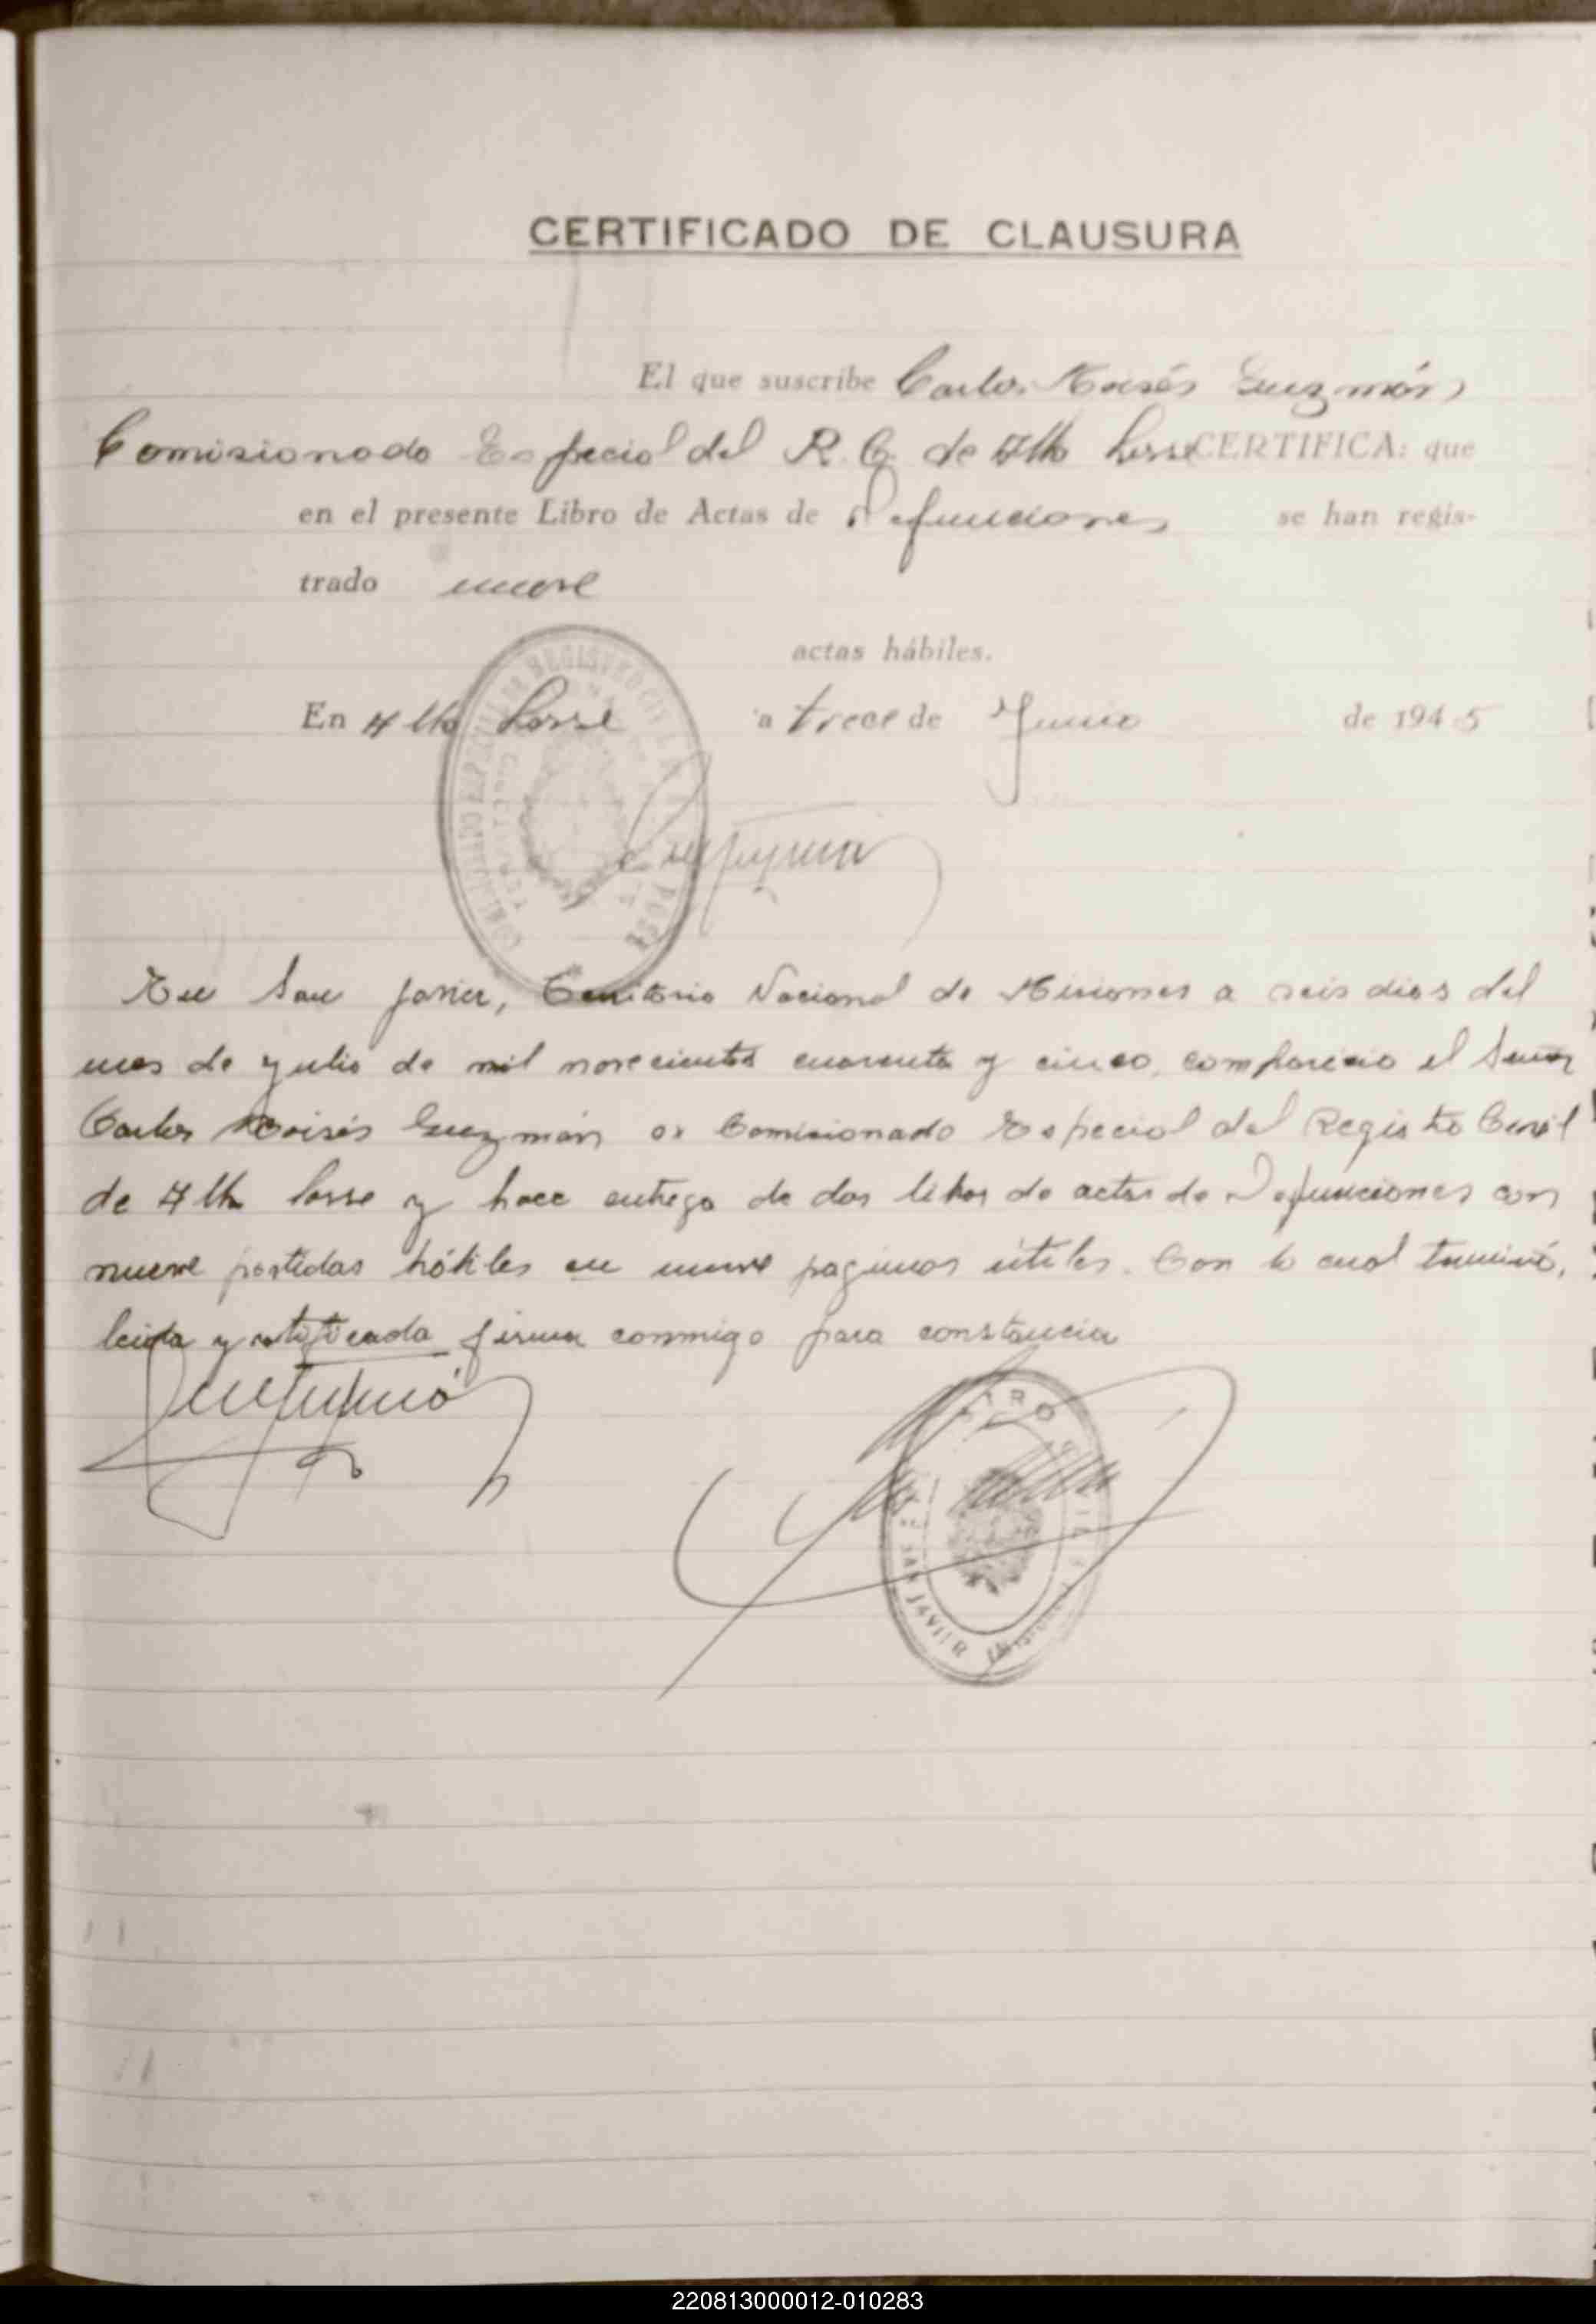 CERTIFICADO DE CLAUSURA
El que suscribe Carlos Moisés Guzmán
Comisionado Especial del R. C. de Alto CERTIFICA: que
en el presente Libro de Actas de Defunciones se han regis-
trado nueve
actas hábiles.
En Alto a trece de Junio de 1945
En San Javier, Territorio Nacional de Misiones a seis dias del
mes de Julio de mil novecientos cuarenta y cinco, comparecio el Señor
Carlos Moisés Guzmán Comisionado Especial del Registro Civil
de Alto y hace entrega de dos libros de actas de Defunciones con
nueve partidas hábiles en nueve paginas útiles. Con lo cual terminó,
leida y ratificada firma conmigo para constancia
SAN JAVIER
220813000012-010283